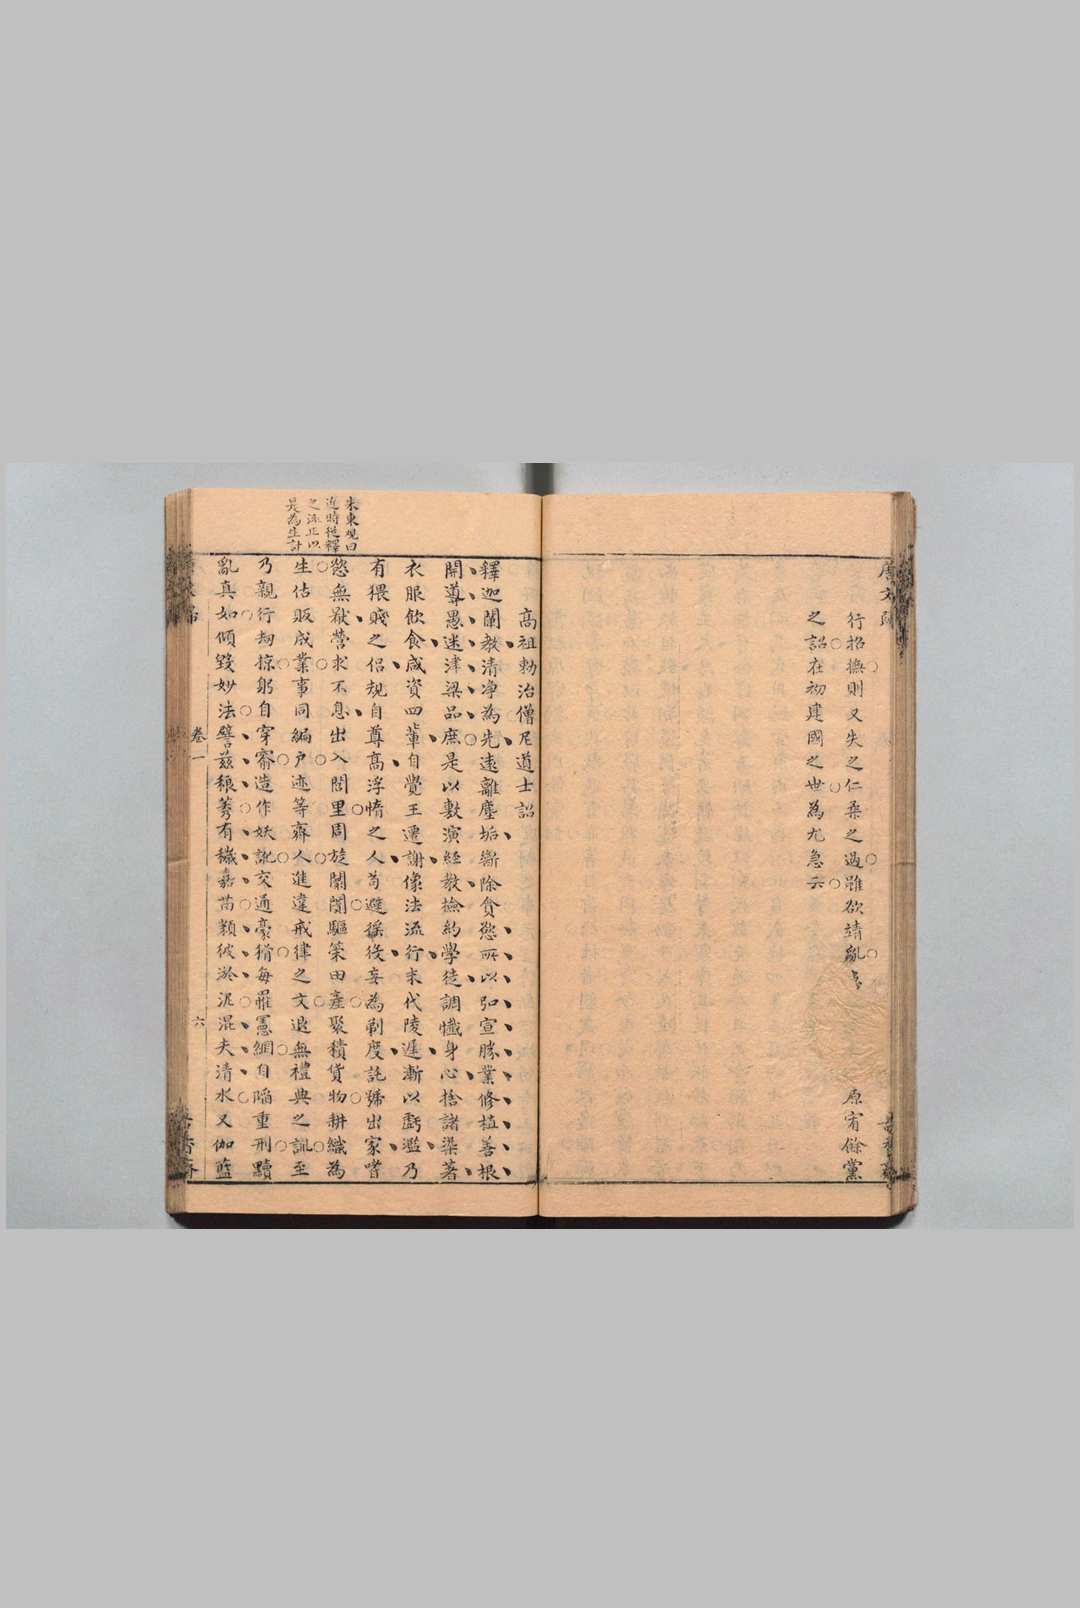 行招撫則又失之仁柔之過雖欲靖亂
原宥餘黨
之詔在初建國之世為尤急云
高祖勅治僧尼道士詔
釋迦闡教清淨為先遠離塵垢斷除貪慾所以弘宣勝業修植善根
開導愚迷津梁品庶是以敷演經教撿約學徒調懺身心捨諸染著
衣服飲食咸資四輩自覺王遷謝像法流行末代陵遲漸以虧濫乃
有猥賤之侶規自尊高浮惰之人苟避徭役妄為剃度託號出家嗜
慾無猒營求不息出入閭里周旋闤闠驅策田產聚積貨物耕織為
生估販成業事同編户迹等齊人進違戒律之文退無禮典之訓至
乃親行刼掠躬自穿窬造作妖訛交通豪猾每罹憲網自陷重刑黷
亂真如傾毀妙法譬兹稂莠有穢嘉苗類彼淤泥混夫清水又伽藍
朱東觀曰
近時從釋
之流正以
是為生計
卷一
六